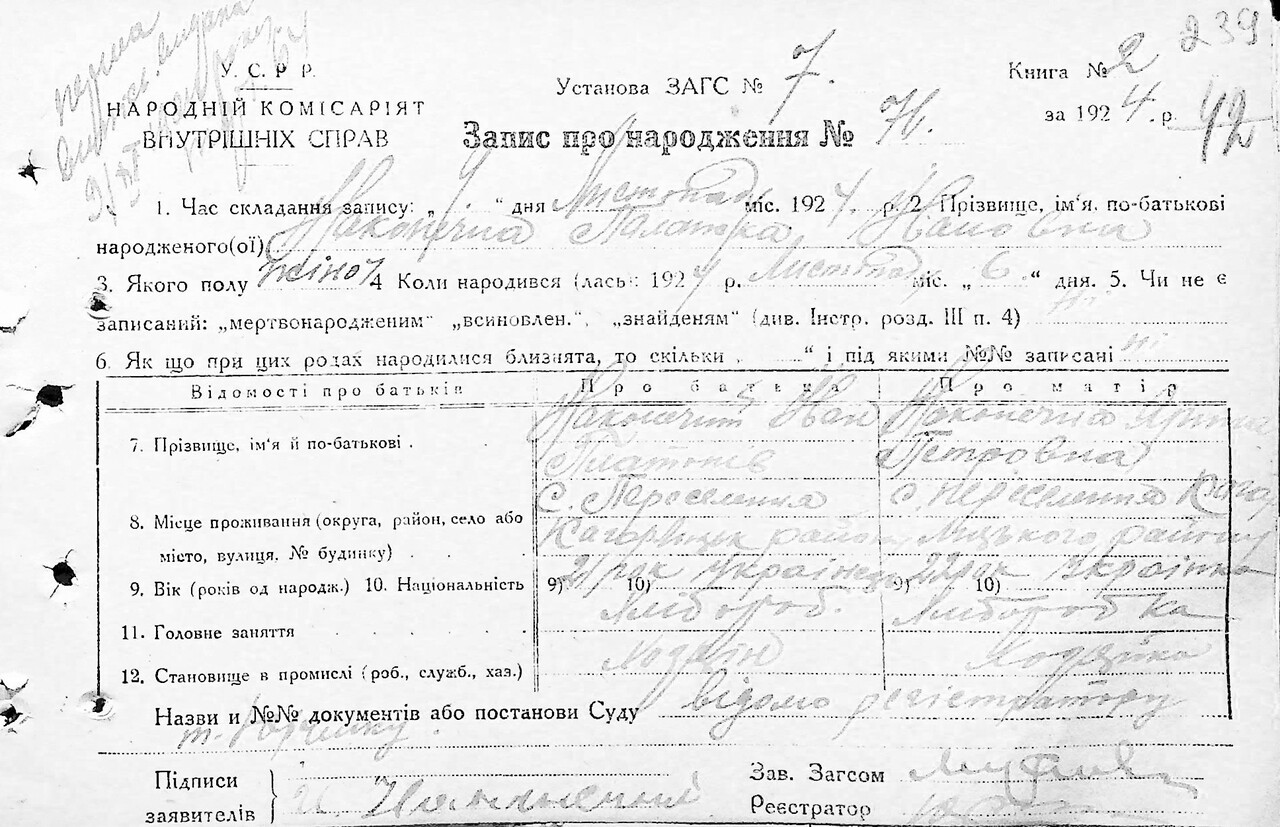 2 239
У. С. Р Р.
НАРОДНІЙ КОМІСАРІЯТ
ВНУТРІШНІХ СПРАВ
Установа ЗАГС № 7.
Книга № 2
за 1924 р. 42
Запис про народження №
1. Час складання запису: „ 7. “ дня Листопад міс. 1924. р. 2. Прізвище, ім'я, по-батькові
народженого(ої) Наконечна Івановна
3. Якого полу жіноч. 4 Коли народився (лась): 1924 р. Листопад міс. „ 6 “ дня. 5. Чи не є
записаний: „мертвонародженим“ „всиновлен.“, „знайденям“ (див. Інстр. розд. III п. 4) ні
6. Як що при цих родах народилися близнята, то скільки „ “ і під якими №№ записані ні
Відомості про батьків Про батька Про матір
7. Прізвище, ім'я й по-батькові . Наконечний Іван Наконечна
Платонів Петровна
8. Місце проживання (округа, район, село або с. Переселення с. Переселення Кага-
місто, вулиця, № будинку) район лицького району
9. Вік (років од народж.) 10. Національність 9) 21 рок 10) українець 9) 22 рок 10) Українка
11. Головне заняття Хлібороб. Хлібороб ка
12. Становище в промислі (роб., служб., хаз.) Хозяїн Хозяйка
Назви и №№ документів або постанови Суду відомо реєстратору
Підписи
заявителів
Зав. Загсом
Реєстратор